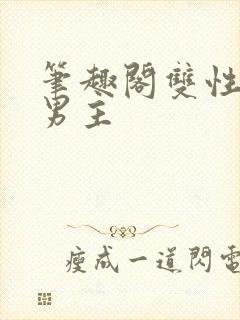 筆趣閣雙性
男主
瘦成一道閃電